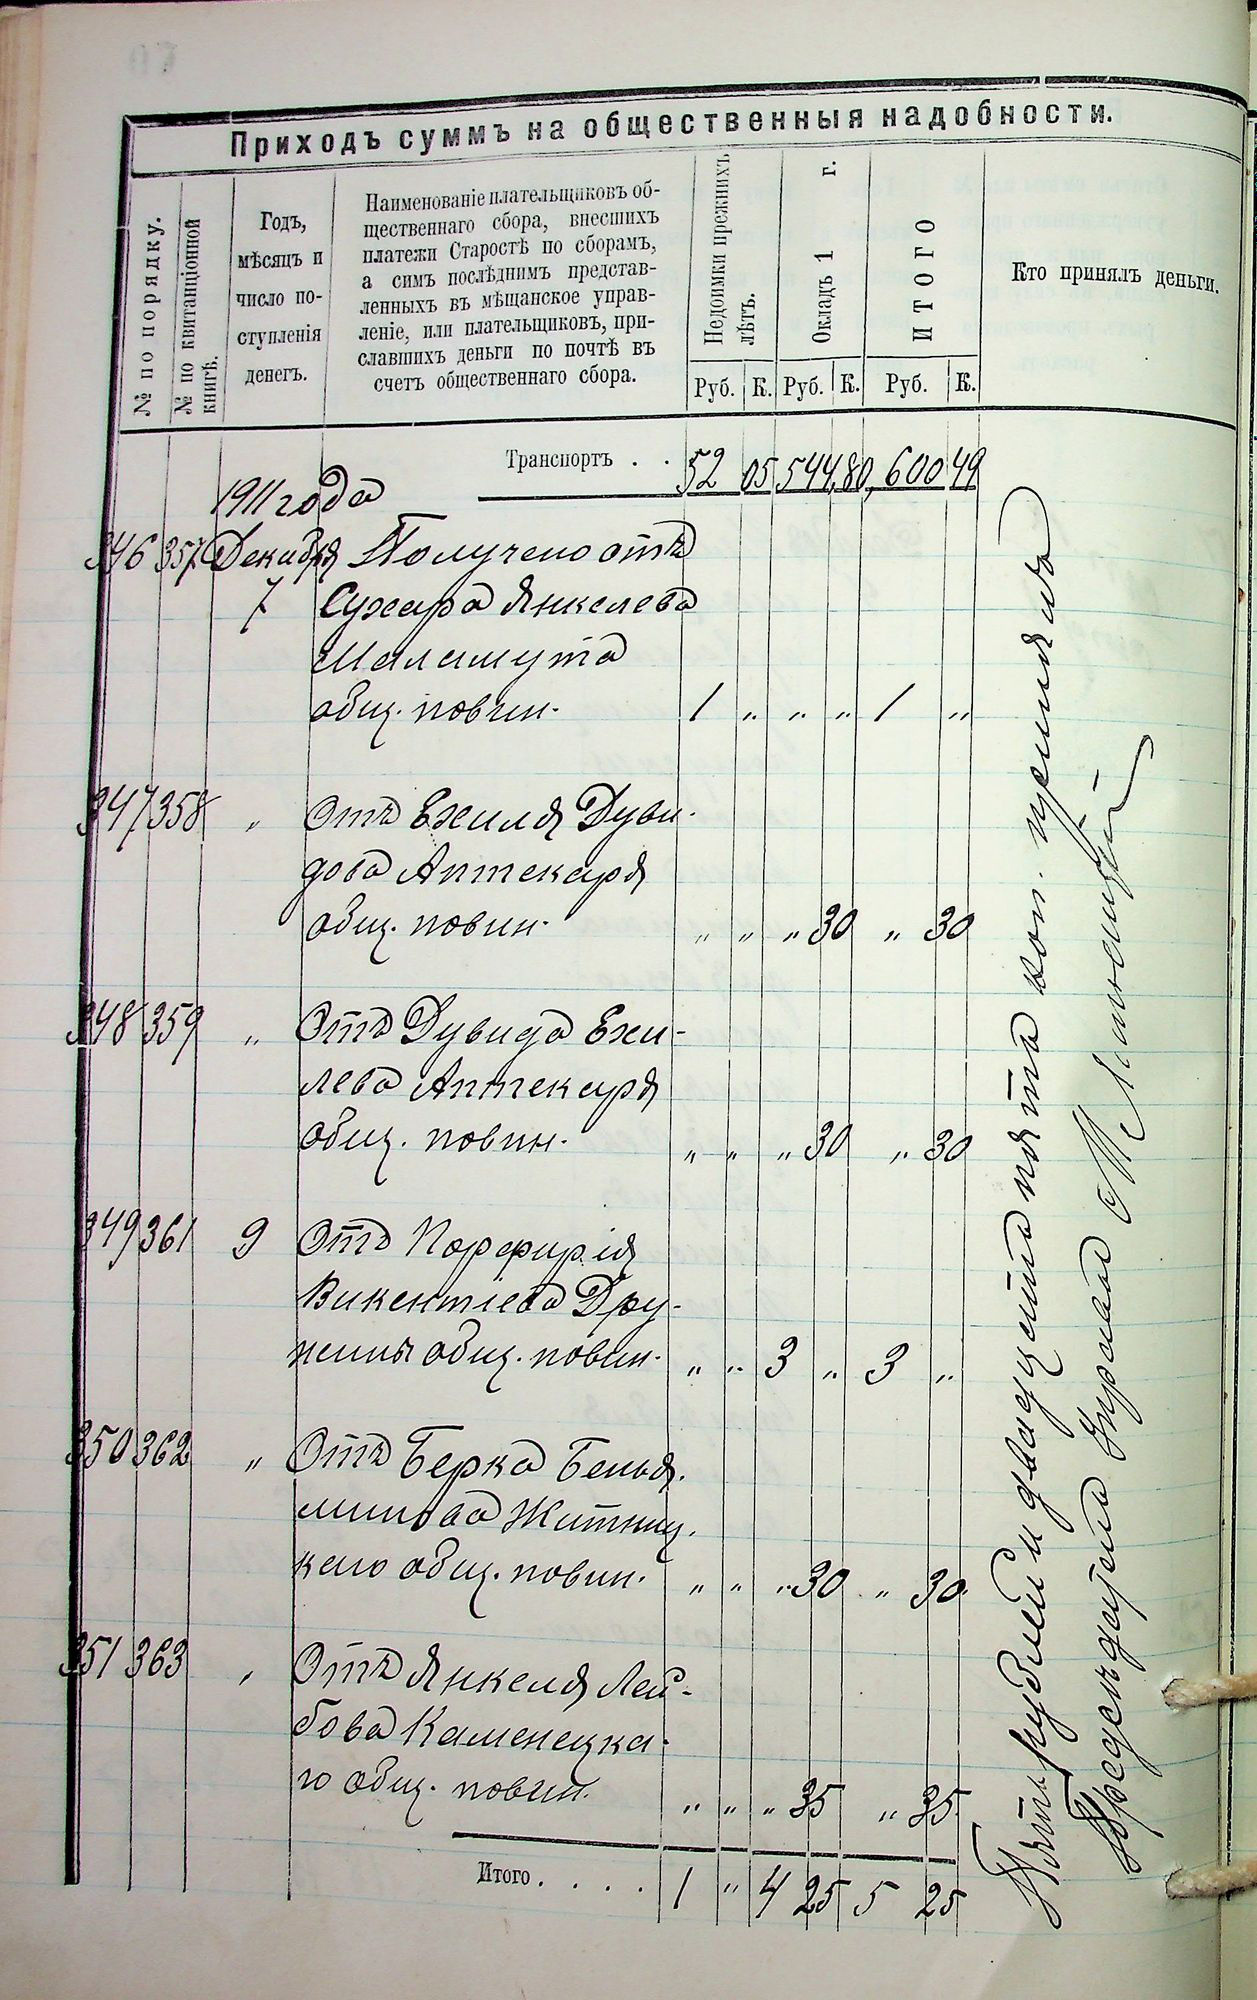 Приходъ суммъ на общественныя надобности.
№ по порядку.
№ по квитанціонной
книгѣ.
Годъ,
мѣсяцъ и
число по-
ступленія
денегъ.
Наименованіе плательщиковъ об-
щественнаго сбора, внесшихъ
платежи Старостѣ по сборамъ,
а симъ послѣднимъ представ-
ленныхъ въ мѣщанское управ-
леніе, или плательщиковъ, при-
славшихъ деньги по почтѣ въ
счетъ общественнаго сбора.
Недоимки прежнихъ
лѣтъ.
Окладъ 1 г.
ИТОГО
Кто принялъ деньги.
Руб. К. Руб. К. Руб. К.
Транспортъ . . 52 05 544 80 600 49
1911 года
346 357 Декабря Получено отъ
7 Сухара Янкелева
Маламута
общ. повин. 1 „ „ „ 1 „
347 358 „ Отъ Ехиля Дуви-
дова Аптекаря
общ. повин. „ „ „ 30 „ 30
348 359 „ Отъ Дувида Ехи-
лева Аптекаря
общ. повин. „ „ „ 30 „ 30
349 361 9 Отъ Порфирія
Викентіева Дру-
жины общ. повин. „ „ 3 „ 3 „
350 362 „ Отъ Берка Бенья-
минова Житниц-
каго общ. повин. „ „ „ 30 „ 30
351 363 „ Отъ Янкеля Лей-
бова Каменецка-
го общ. повин. „ „ „ 35 „ 35
Итого . . . . 1 „ 4 25 5 25
Пять рублей и двадцать пять коп. принялъ